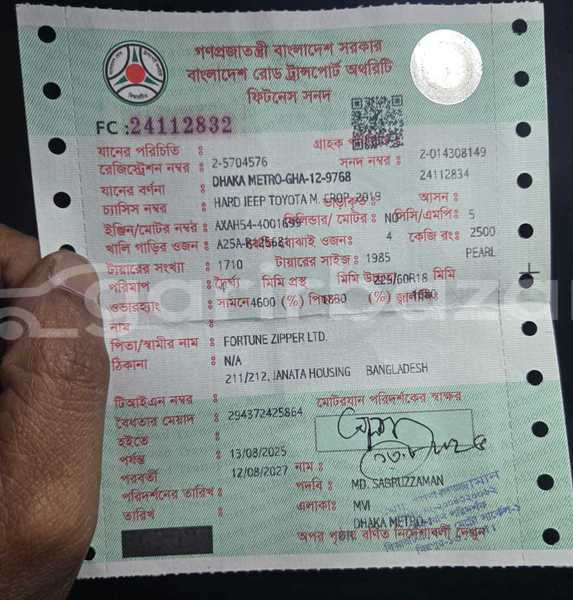 গণপ্রজাতন্ত্রী বাংলাদেশ সরকার
বাংলাদেশ রোড ট্রান্সপোর্ট অথরিটি
ফিটনেস সনদ
FC : 24112832
যানের পরিচিতি : 2-5704576 গ্রাহক 2-014308149
রেজিস্ট্রেশন নম্বর : DHAKA METRO-GHA-12-9768 সনদ নম্বর : 24112834
যানের বর্ণনা : HARD JEEP TOYOTA M. 2019
চ্যাসিস নম্বর : AXAH54-4001699 আসন : 5
ইঞ্জিন/মোটর নম্বর : সিলিন্ডার/ মোটর : NO সিসি/এমপি: 2500
খালি গাড়ির ওজন : 1710 বোঝাই ওজন: 4 কেজি রং: PEARL
টায়ারের সংখ্যা : টায়ারের সাইজ : 1985
পরিমাপ : দৈর্ঘ্য মিমি প্রস্থ মিমি 225/60R18 মিমি
ওভারহ্যাং : সামনে 4600 (%) (%)
নাম : FORTUNE ZIPPER LTD.
পিতা/স্বামীর নাম : N/A
ঠিকানা : 211/212, JANATA HOUSING BANGLADESH
টিআইএন নম্বর : 294372425864 মোটরযান পরিদর্শকের স্বাক্ষর
বৈধতার মেয়াদ :
হইতে : 13/08/2025
পর্যন্ত : 12/08/2027
পরবর্তী নাম : MD. SABRUZZAMAN
পরিদর্শনের তারিখ : পদবি : MVI
তারিখ : এলাকা: DHAKA METRO
অপর পৃষ্ঠায় বর্ণিত নির্দেশাবলী দেখুন।